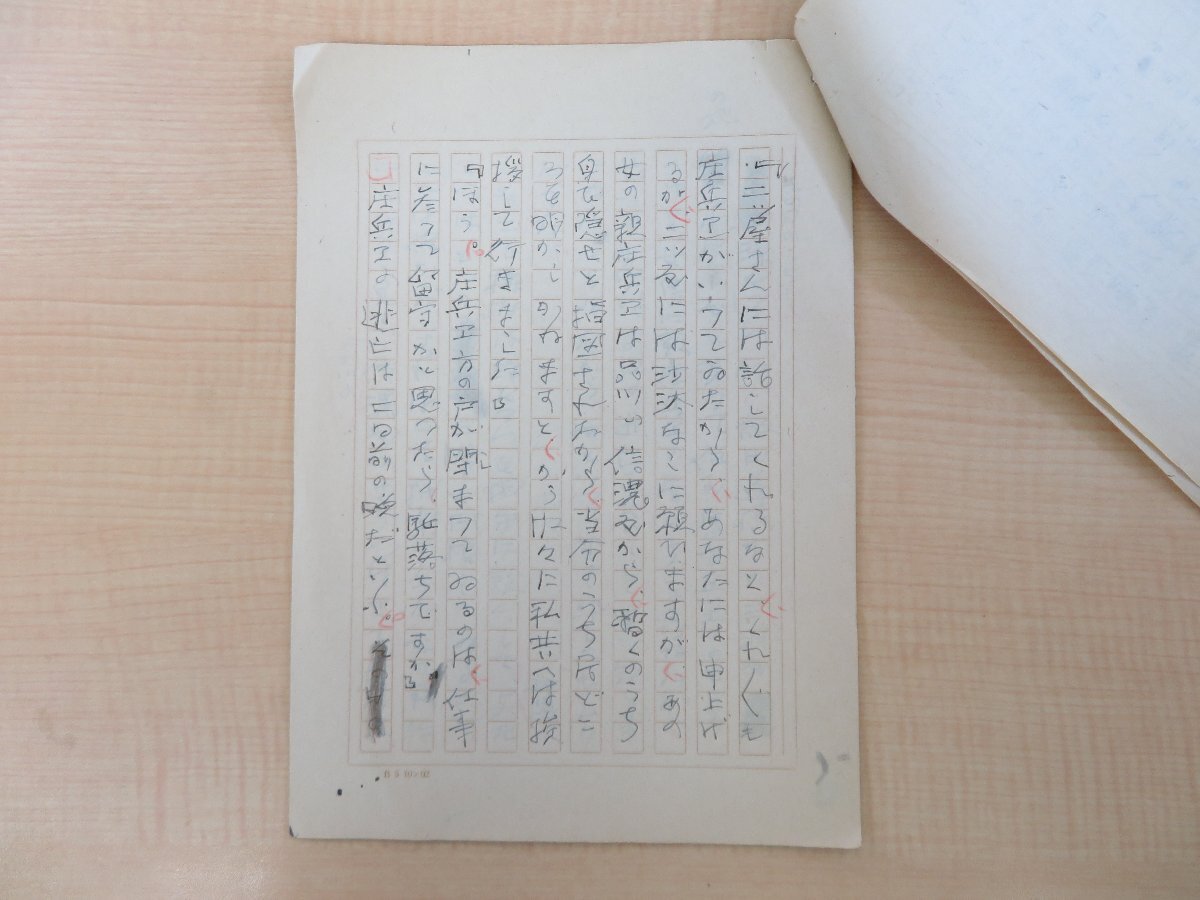 「三ツ屋さんには話してくれるなと、くれぐも
庄兵ヱがいつてゐたから、あなたには申上げ
るが、三ツ屋には沙汰なしに願ひますが、あの
女の親庄兵ヱは品川の信濃屋から、暫くのうち
身を隠せと指図されたから、当分のうち居どこ
ろを明かしかねますと、かう仕々に私共へは挨
拶して行きました」
「ほう。庄兵ヱ方の戸が閉まつてゐるのは、仕事
に参つて留守かと思つたら、駈落ちですか」
庄兵ヱの逃亡は二日前の晩だといふ。
B5 10×02